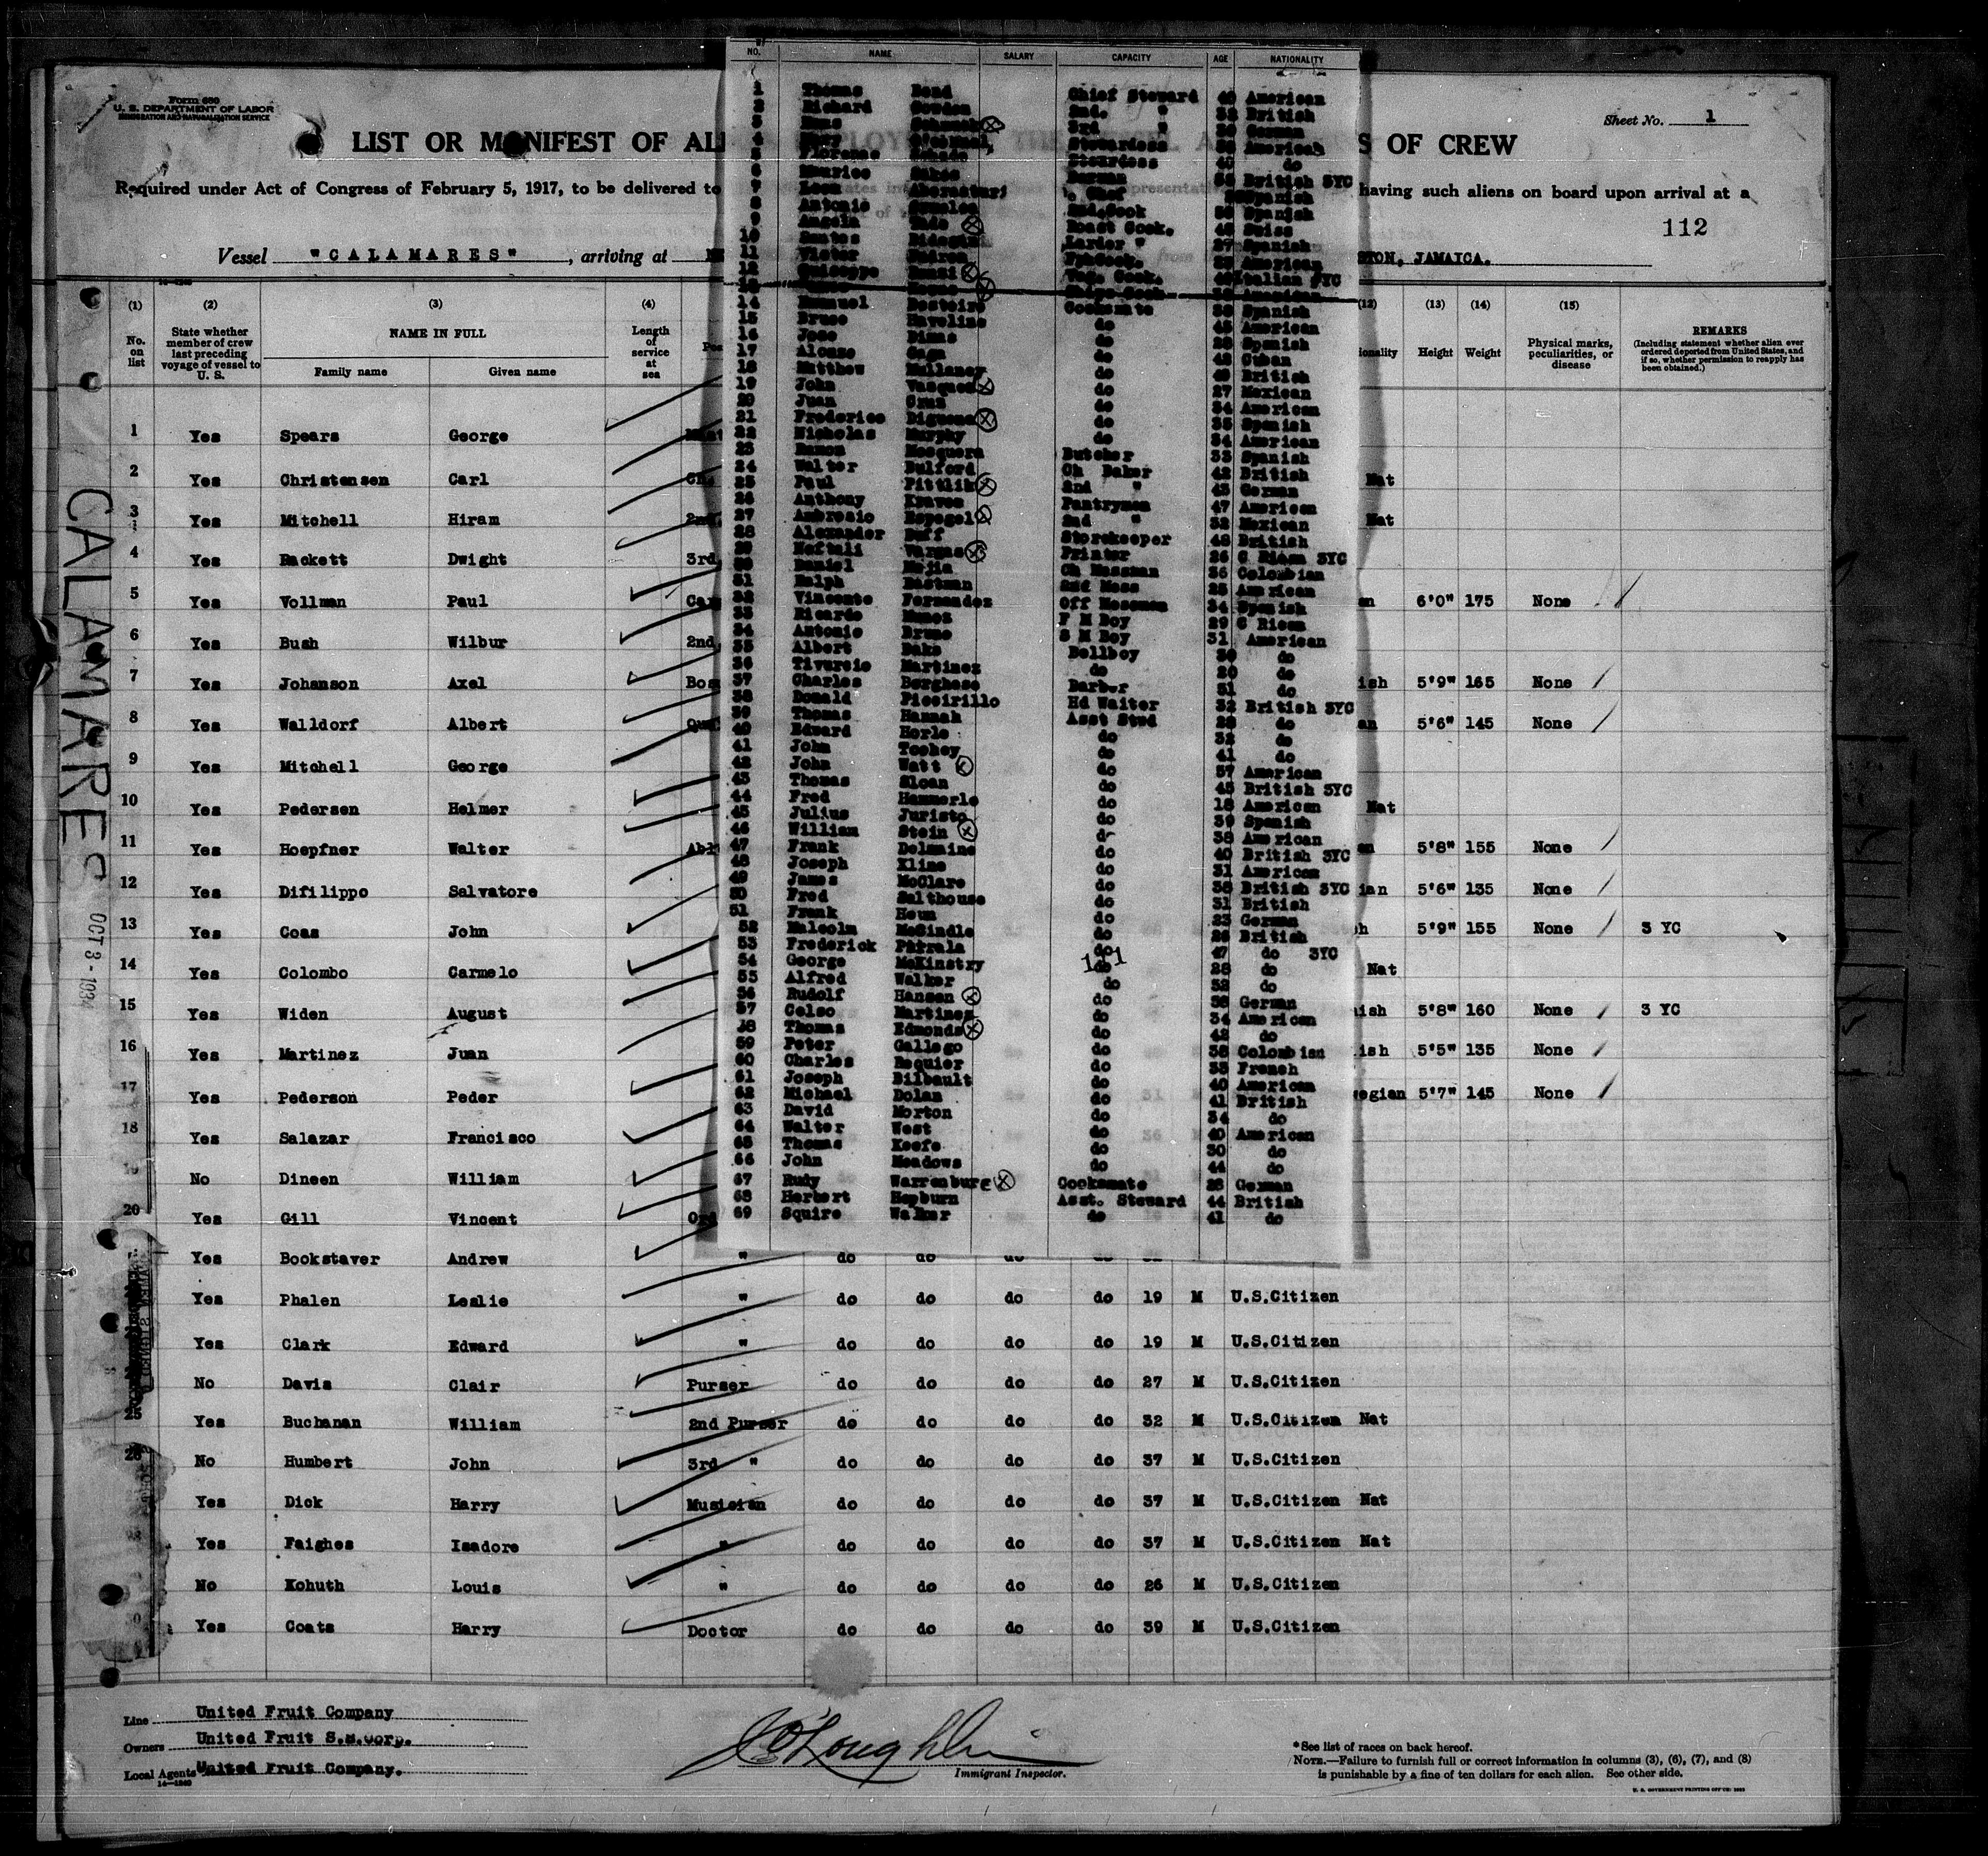 Form 680
U. S. DEPARTMENT OF LABOR
IMMIGRATION AND NATURALIZATION SERVICE
Sheet No. 1
LIST OR MANIFEST OF AL
S OF CREW
Required under Act of Congress of February 5, 1917, to be delivered to
having such aliens on board upon arrival at a
112
Vessel "CALAMARES", arriving at
STON, JAMAICA.
(1) (2) (3) (4) (12) (13) (14) (15)
No. on list
State whether member of crew last preceding voyage of vessel to U. S.
NAME IN FULL
Family name Given name
Length of service at sea
Height Weight
Physical marks, peculiarities, or disease
REMARKS
(Including statement whether alien ever ordered deported from United States, and if so, whether permission to reapply has been obtained.)
NO. NAME SALARY CAPACITY AGE NATIONALITY
1 Thomas Chief Steward American
2 Richard 2nd. " British
3 3rd " German
4 Stewardess American
5 Florence do
6 Maurice British 3YC
7 Chef Spanish
8 Antonio 2nd. Cook Spanish
9 Roast Cook. Swiss
10 Larder " 27 Spanish
11 Victor American
12 Italian 3YC
14 Manuel Cooksmate Spanish
15 do 45 American
16 Jose do Spanish
17 Alonzo do Cuban
18 Matthew Mullaney do British
19 John Vasques do 27 Mexican
20 Juan Cruz do 34 American
21 Frederico do 35 Spanish
22 Nicholas Murphy do 34 American
23 Ramon Mosquera Butcher 33 Spanish
24 Walter Bulford Ch Baker 42 British
25 Paul Pittlik 2nd " 43 German
26 Anthony Kraves Pantryman 47 American
27 Ambrosio 2nd " 32 Mexican
28 Alexander Duff Storekeeper 48 British
29 Neftali Vargas Printer 26 C Rican 3YC
30 Daniel Mejia Ch Messman 36 Colombian
31 Ralph Eastman 2nd Mess 25 American
32 Vincente Fernandez Off Messman 34 Spanish
33 Ricardo Munoz F M Boy 29 C Rican
34 Antonio Bruno S M Boy 31 American
35 Albert Daks Bellboy do
36 Tivurcio Martinez do 20 do
37 Charles Borghese Barber 31 do
38 Donald Piccirillo Hd Waiter 32 British 3YC
39 Thomas Hannah Asst Stwd do
40 Edward Horle do 32 do
41 John Toohey do 41 do
42 John Watt do 57 American
43 Thomas Sloan do 45 British 3YC
44 Fred Hammerle do 18 American
45 Julius Juristo do 39 Spanish
46 William Stein do 38 American
47 Frank Delmaine do 40 British 3YC
48 Joseph Kline do 31 American
49 James McClare do 38 British 3YC
50 Fred Salthouse do 31 British
51 Frank Heun do 23 German
52 Malcolm McCindle do British
53 Frederick do 47 do 3YC
54 George McKinstry do 28 do
55 Alfred Walker do 52 do
56 Rudolf Hansen do German
57 Celso Martinez do 34 American
58 Thomas Edmonds do 42 do
59 Peter Gallego do 38 Colombian
60 Charles Requier do 33 French
61 Joseph Bilbault do 40 American
62 Michael Dolan do 41 British
63 David Morton do 34 do
64 Walter West do 40 American
65 Thomas Keefe do 30 do
66 John Meadows do 44 do
67 Rudy Warrenburg Cooksmate 28 German
68 Herbert Hepburn Asst. Steward 44 British
69 Squire Walker do 41 do
1 Yes Spears George
2 Yes Christensen Carl Nat
3 Yes Mitchell Hiram Nat
4 Yes Rackett Dwight 3rd
5 Yes Vollman Paul 6'0" 175 None
6 Yes Bush Wilbur 2nd
7 Yes Johanson Axel 5'9" 165 None
8 Yes Walldorf Albert 5'6" 145 None
9 Yes Mitchell George
10 Yes Pedersen Helmer Nat
11 Yes Hoepfner Walter 5'8" 155 None
12 Yes Difilippo Salvatore 5'6" 135 None
13 Yes Coas John 5'9" 155 None 3 YC
14 Yes Colombo Carmelo Nat
15 Yes Widen August 5'8" 160 None 3 YC
16 Yes Martinez Juan 5'5" 135 None
17 Yes Pederson Peder 5'7" 145 None
18 Yes Salazar Francisco
No Dineen William
20 Yes Gill Vincent
Yes Bookstaver Andrew " do do do do
Yes Phalen Leslie " do do do do 19 M U.S.Citizen
Yes Clark Edward " do do do do 19 M U.S.Citizen
No Davis Clair Purser do do do do 27 M U.S.Citizen
25 Yes Buchanan William 2nd Purser do do do do 32 M U.S.Citizen Nat
26 No Humbert John 3rd " do do do do 37 M U.S.Citizen
Yes Dick Harry Musician do do do do 37 M U.S.Citizen Nat
Yes Faighes Isadore " do do do do 37 M U.S.Citizen Nat
No Kohuth Louis " do do do do 26 M U.S.Citizen
Yes Coats Harry Doctor do do do do 39 M U.S.Citizen
CALAMARES
OCT 3 - 1934
Line United Fruit Company
Owners United Fruit S.S.Corp.
Local Agents United Fruit Company.
Immigrant Inspector.
*See list of races on back hereof.
NOTE.—Failure to furnish full or correct information in columns (3), (6), (7), and (8)
is punishable by a fine of ten dollars for each alien. See other side.